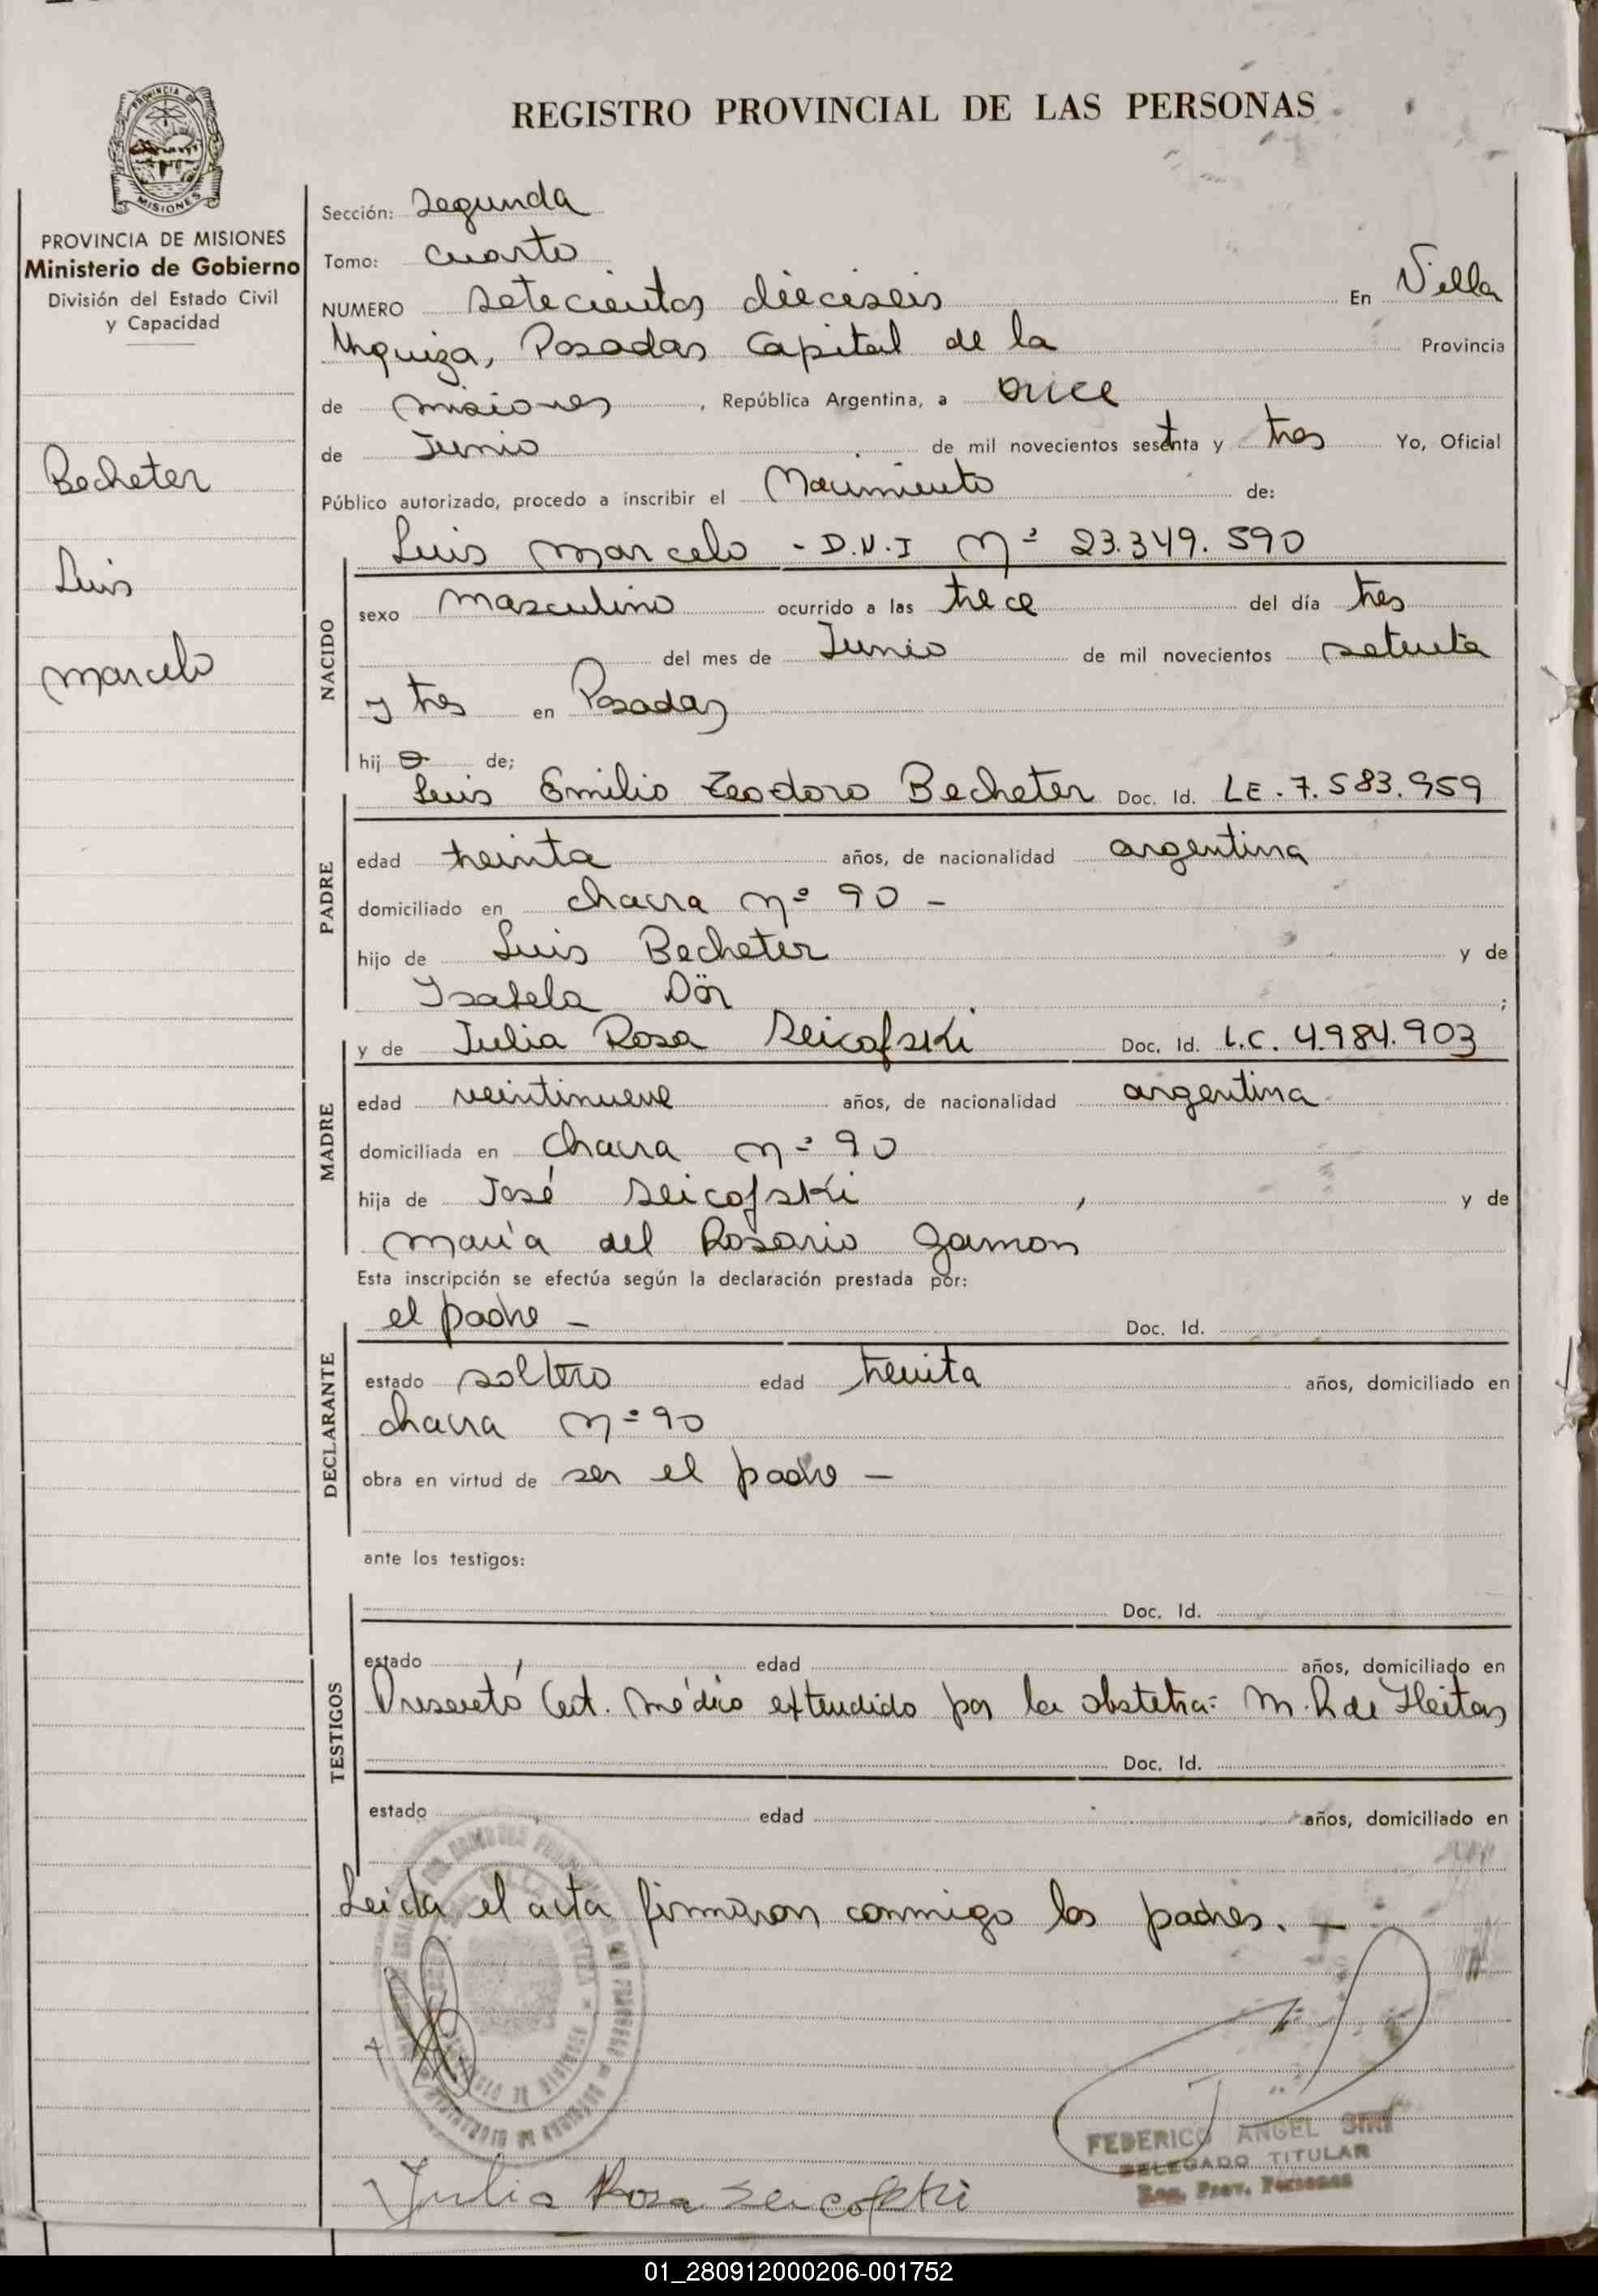 REGISTRO PROVINCIAL DE LAS PERSONAS
PROVINCIA DE MISIONES
Ministerio de Gobierno
División del Estado Civil
y Capacidad
Becheter
Luis
Marcelo
Sección: Segunda
Tomo: Cuarto
NUMERO Setecientos dieciseis En Villa
Urquiza, Posadas Capital de la Provincia
de Misiones, República Argentina, a once
de Junio de mil novecientos sesenta y tres Yo, Oficial
Público autorizado, procedo a inscribir el Nacimiento de:
Luis Marcelo - D.N.I Nº 23.349.590
NACIDO
sexo Masculino ocurrido a las trece del día tres
del mes de Junio de mil novecientos setenta
y tres en Posadas
hijo de;
PADRE
Luis Emilio Teodoro Becheter Doc. Id. LE. 7.583.959
edad treinta años, de nacionalidad argentina
domiciliado en chacra nº 90 -
hijo de Luis Becheter y de
Isabela Dör ;
MADRE
y de Julia Rosa Seicofski Doc. Id. L.C. 4.984.903
edad veintinueve años, de nacionalidad argentina
domiciliada en chacra nº 90
hija de José Seicofski , y de
María del Rosario Gamon
Esta inscripción se efectúa según la declaración prestada por:
DECLARANTE
el padre - Doc. Id.
estado soltero edad treinta años, domiciliado en
chacra nº 90
obra en virtud de ser el padre -
ante los testigos:
TESTIGOS
Doc. Id.
estado edad años, domiciliado en
Presentó Cert. Médico extendido por la obstetra: M. R de Fleitas
Doc. Id.
estado edad años, domiciliado en
Leida el acta firmaron conmigo los padres. -
FEDERICO ANGEL
DELEGADO TITULAR
Reg. Prov. Personas
Julia Rosa Seicofski
01_280912000206-001752